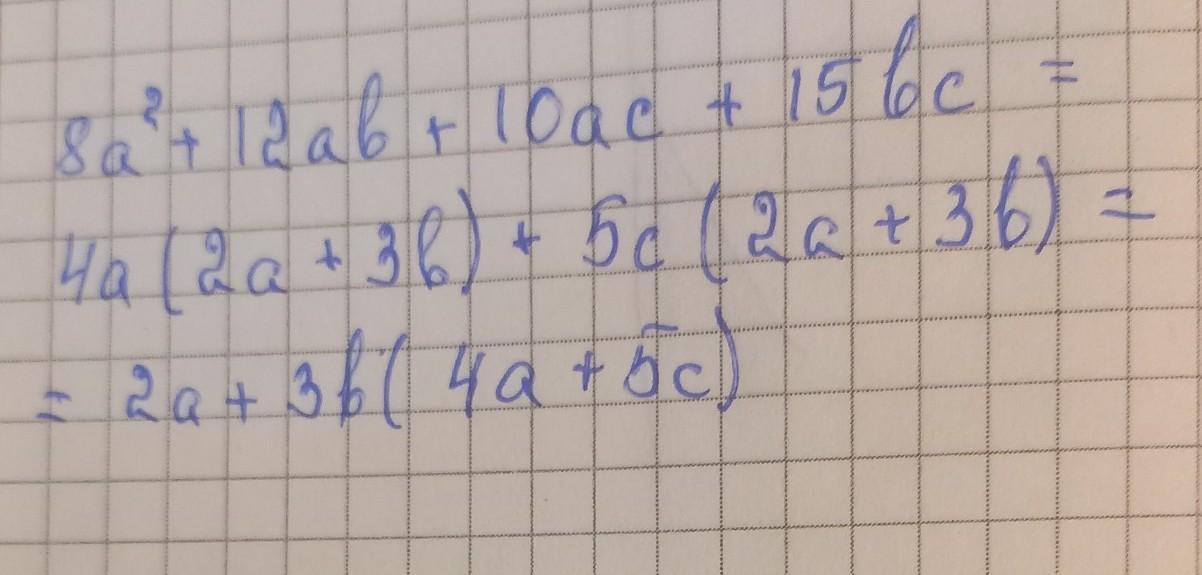 8a² + 12ab + 10ac + 15bc =
4a (2a + 3b) + 5c (2a + 3b) =
= 2a + 3b( 4a + 5c)